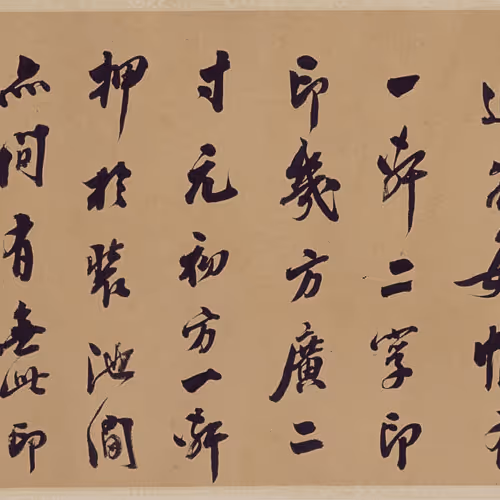 一軒二字印
印幾方廣二
寸元初方一軒
押於裝池間
間有無此印